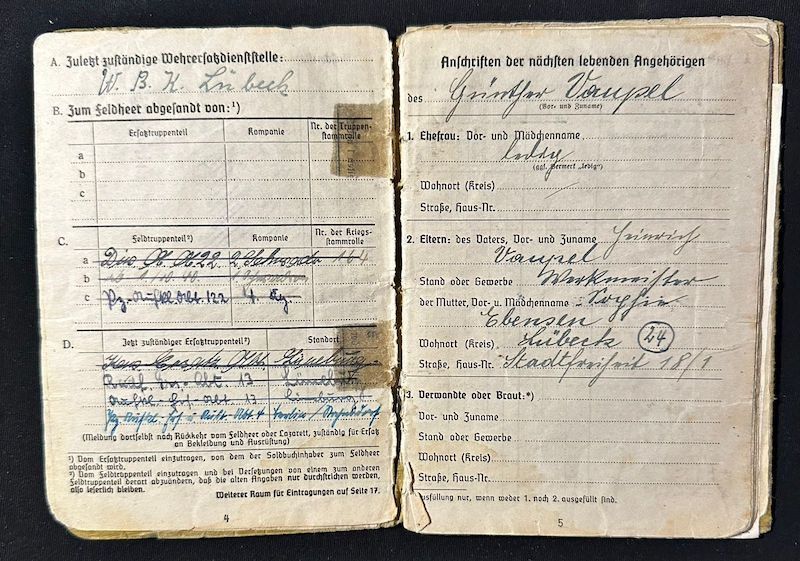 A. Zuletzt zuständige Wehrersatzdienststelle:
W. B. K. Lübeck
B. Zum Feldheer abgesandt von:¹)
Ersatztruppenteil Kompanie Nr. der Truppen-
stammrolle
a
b
c
C. Feldtruppenteil²) Kompanie Nr. der Kriegs-
stammrolle
a Div. A. A. 22 2. Schwadr 164
b
c Pz.-Aufkl. Abt. 122 4.
D. Jetzt zuständiger Ersatztruppenteil²) Standort
Kav. Ersatz Abt. Lüneburg
Abt. 13 Lüneburg
Abt. 13 Lüneburg
Abt. 4 Berlin /
(Meldung dortselbst nach Rückkehr vom Feldheer oder Lazarett, zuständig für Ersatz
an Bekleidung und Ausrüstung)
¹) Vom Ersatztruppenteil einzutragen, von dem der Soldbuchinhaber zum Feldheer
abgesandt wird.
²) Vom Feldtruppenteil einzutragen und bei Versetzungen von einem zum anderen
Feldtruppenteil derart abzuändern, daß die alten Angaben nur durchstrichen werden,
also leserlich bleiben.
Weiterer Raum für Eintragungen auf Seite 17.
4
Anschriften der nächsten lebenden Angehörigen
des Günther Vaupel
(Vor- und Zuname)
1. Ehefrau: Vor- und Mädchenname
ledig
(ggf. Vermerk „ledig")
Wohnort (Kreis)
Straße, Haus-Nr.
2. Eltern: des Vaters, Vor- und Zuname Heinrich
Vaupel
Stand oder Gewerbe Werkmeister
der Mutter, Vor- u. Mädchenname Sophie
Ebensen
Wohnort (Kreis) Lübeck 24
Straße, Haus-Nr. Stadtfreiheit 18/1
3. Verwandte oder Braut:*)
Vor- und Zuname
Stand oder Gewerbe
Wohnort (Kreis)
Straße, Haus-Nr.
Ausfüllung nur, wenn weder 1. noch 2. ausgefüllt sind.
5